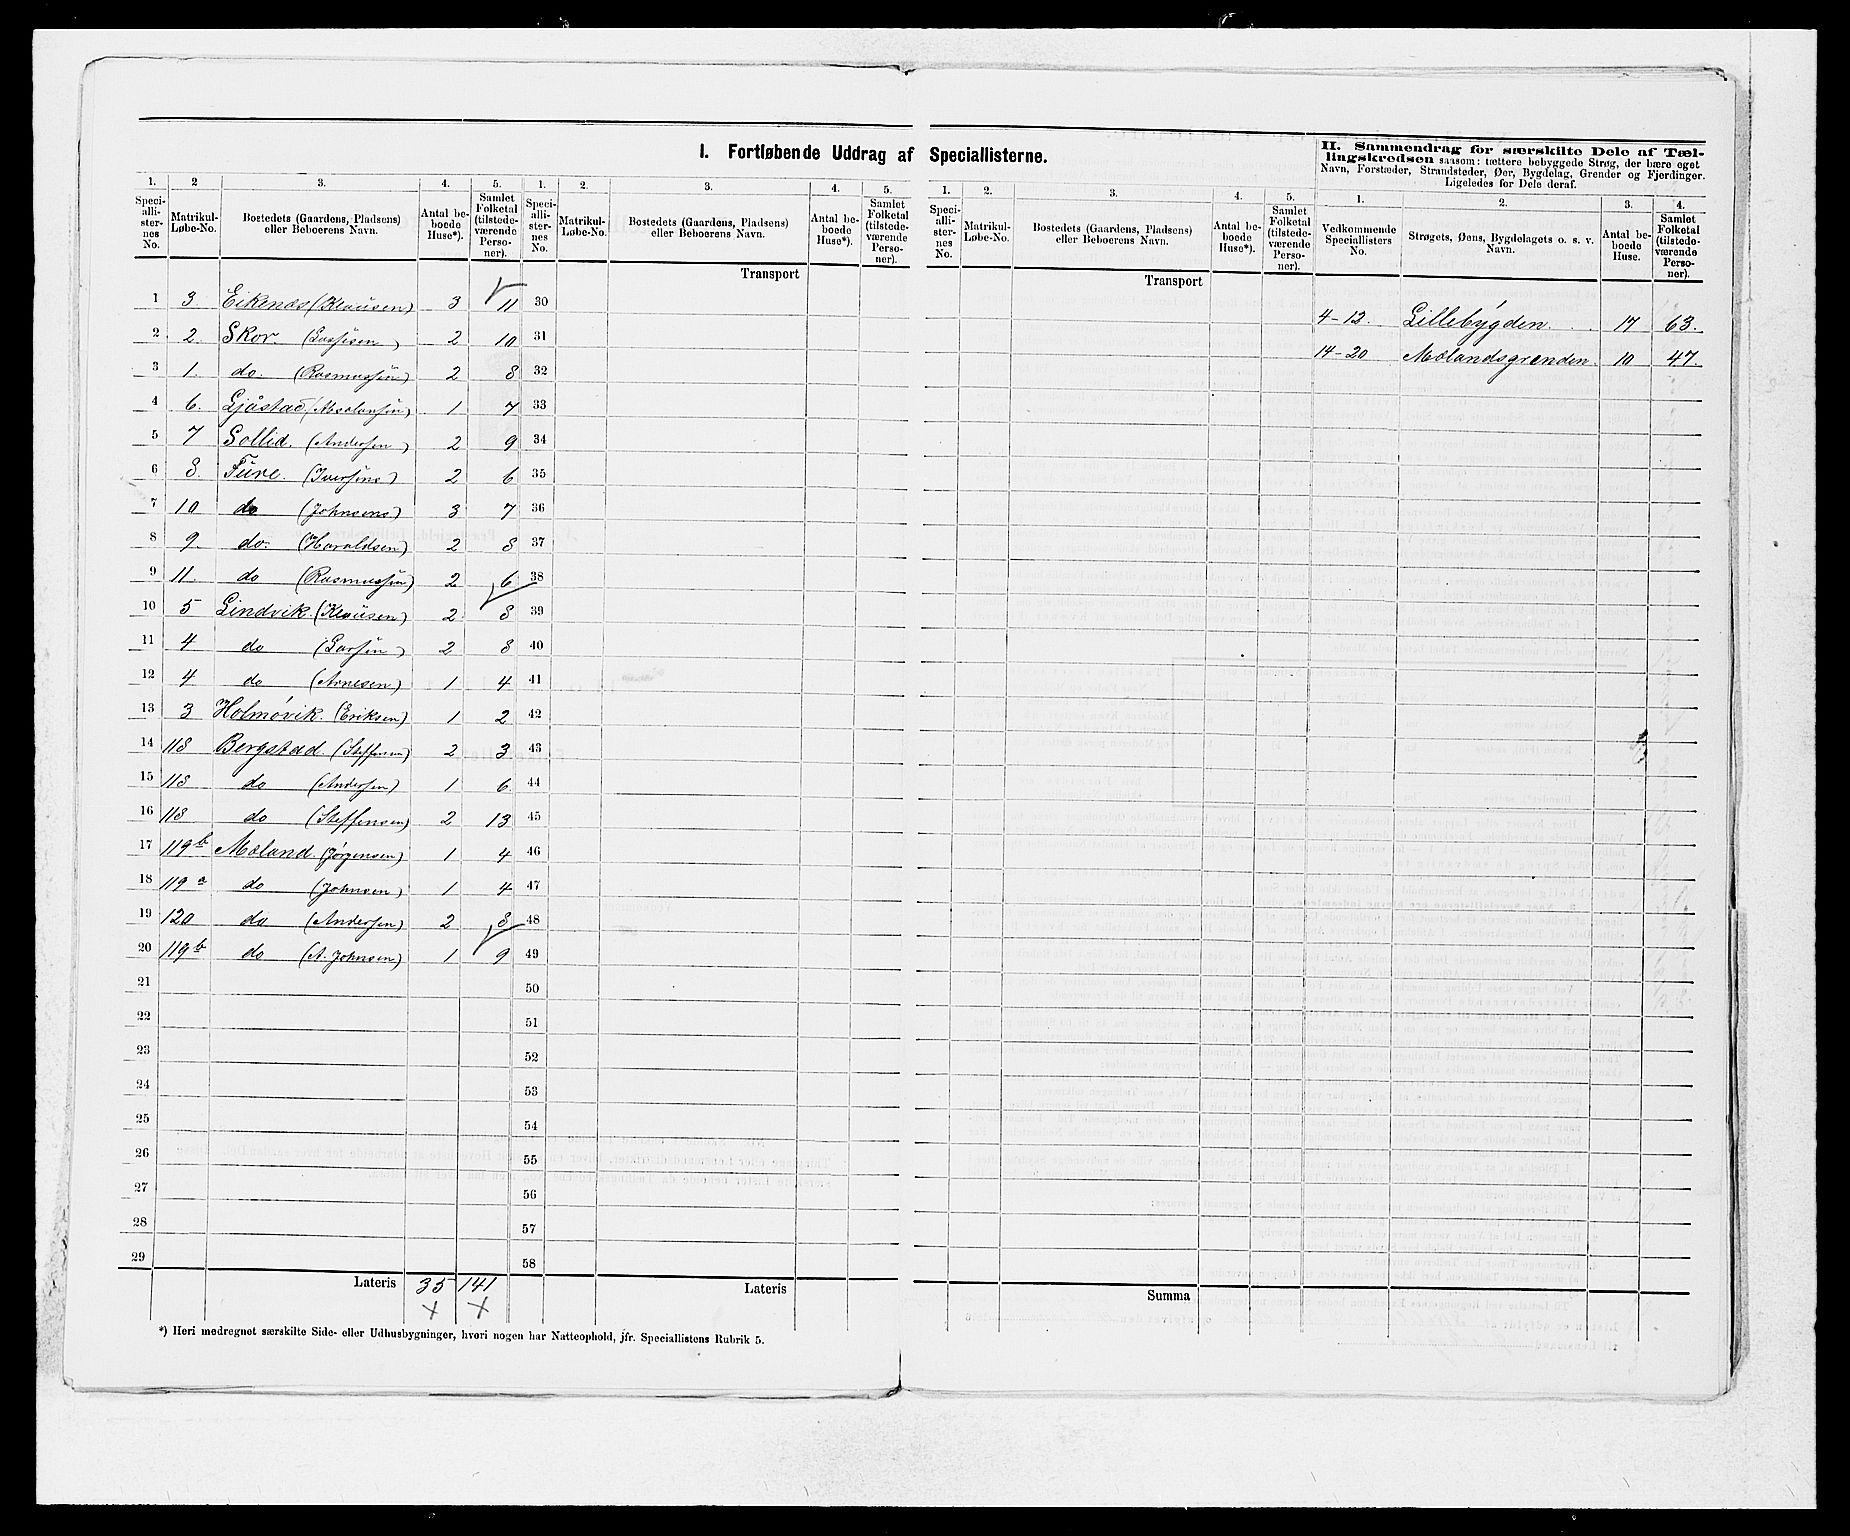 I. Fortløbende Uddrag af Speciallisterne.
II. Sammendrag for særskilte Dele af Tæl-
lingskredsen saasom: tættere bebyggede Strøg, der bære eget
Navn, Forstæder, Strandsteder, Øer, Bygdelag, Grender og Fjerdinger.
Ligeledes for Dele deraf.
1. 2 3. 4. 5. 1. 2. 3. 4. 5. 1. 2. 3. 4. 5. 1. 2. 3. 4.
Speci-alli-ster-nes No. Matrikul-Løbe-No. Bostedets (Gaardens, Pladsens) eller Beboerens Navn. Antal be-boede Huse*). Samlet Folketal (tilstede-værende Perso-ner).
Speci-alli-ster-nes No. Matrikul-Løbe-No. Bostedets (Gaardens, Pladsens) eller Beboerens Navn. Antal be-boede Huse*). Samlet Folketal (tilstede-værende Perso-ner).
Speci-alli-ster-nes No. Matrikul-Løbe-No. Bostedets (Gaardens, Pladsens) eller Beboerens Navn. Antal be-boede Huse*). Samlet Folketal (tilstede-værende Perso-ner).
Vedkommende Speciallisters No. Strøgets, Øens, Bygdelagets o. s. v. Navn. Antal be-boede Huse. Samlet Folketal (tilstede-værende Perso-ner).
Transport Transport
1 3. Eikenæs (Klausen) 3 11 30
2 2. Skor 2 10 31
3 1. do. (Rasmussen) 2 8 32
4 6. Ljåstad (Absalonsen) 1 7 33
5 7 Sollid. (Andersen) 2 9 34
6 8. Fure. (Iversens) 2 6 35
7 10 do (Johnsens) 3 7 36
8 9. do. (Haraldsen) 2 8 37
9 11. do (Rasmussen) 2 6 38
10 5 Lindvik. (Klausen) 2 8 39
11 4 do (Larsen) 2 8 40
12 4 do (Arnesen) 1 4 41
13 3 Holmøvik. (Eriksen) 1 2 42
14 118 Bergstad. (Steffensen) 2 3 43
15 118 do (Andersen) 1 6 44
16 118 do (Steffensen) 2 13 45
17 119b Mæland. (Jørgensen) 1 4 46
18 119a do (Johnsen) 1 4 47
19 120 do (Andersen) 2 8 48
20 119b do (A. Johnsen) 1 9 49
21 50
22 51
23 52
24 53
25 54
26 55
27 56
28 57
29 58
Lateris 35 141 Lateris Summa
4-12. Lillebygden. 17 63.
14-20 Mælandsgrenden. 10 47.
*) Heri medregnet særskilte Side- eller Udhusbygninger, hvori nogen har Natteophold, jfr. Speciallistens Rubrik 5.